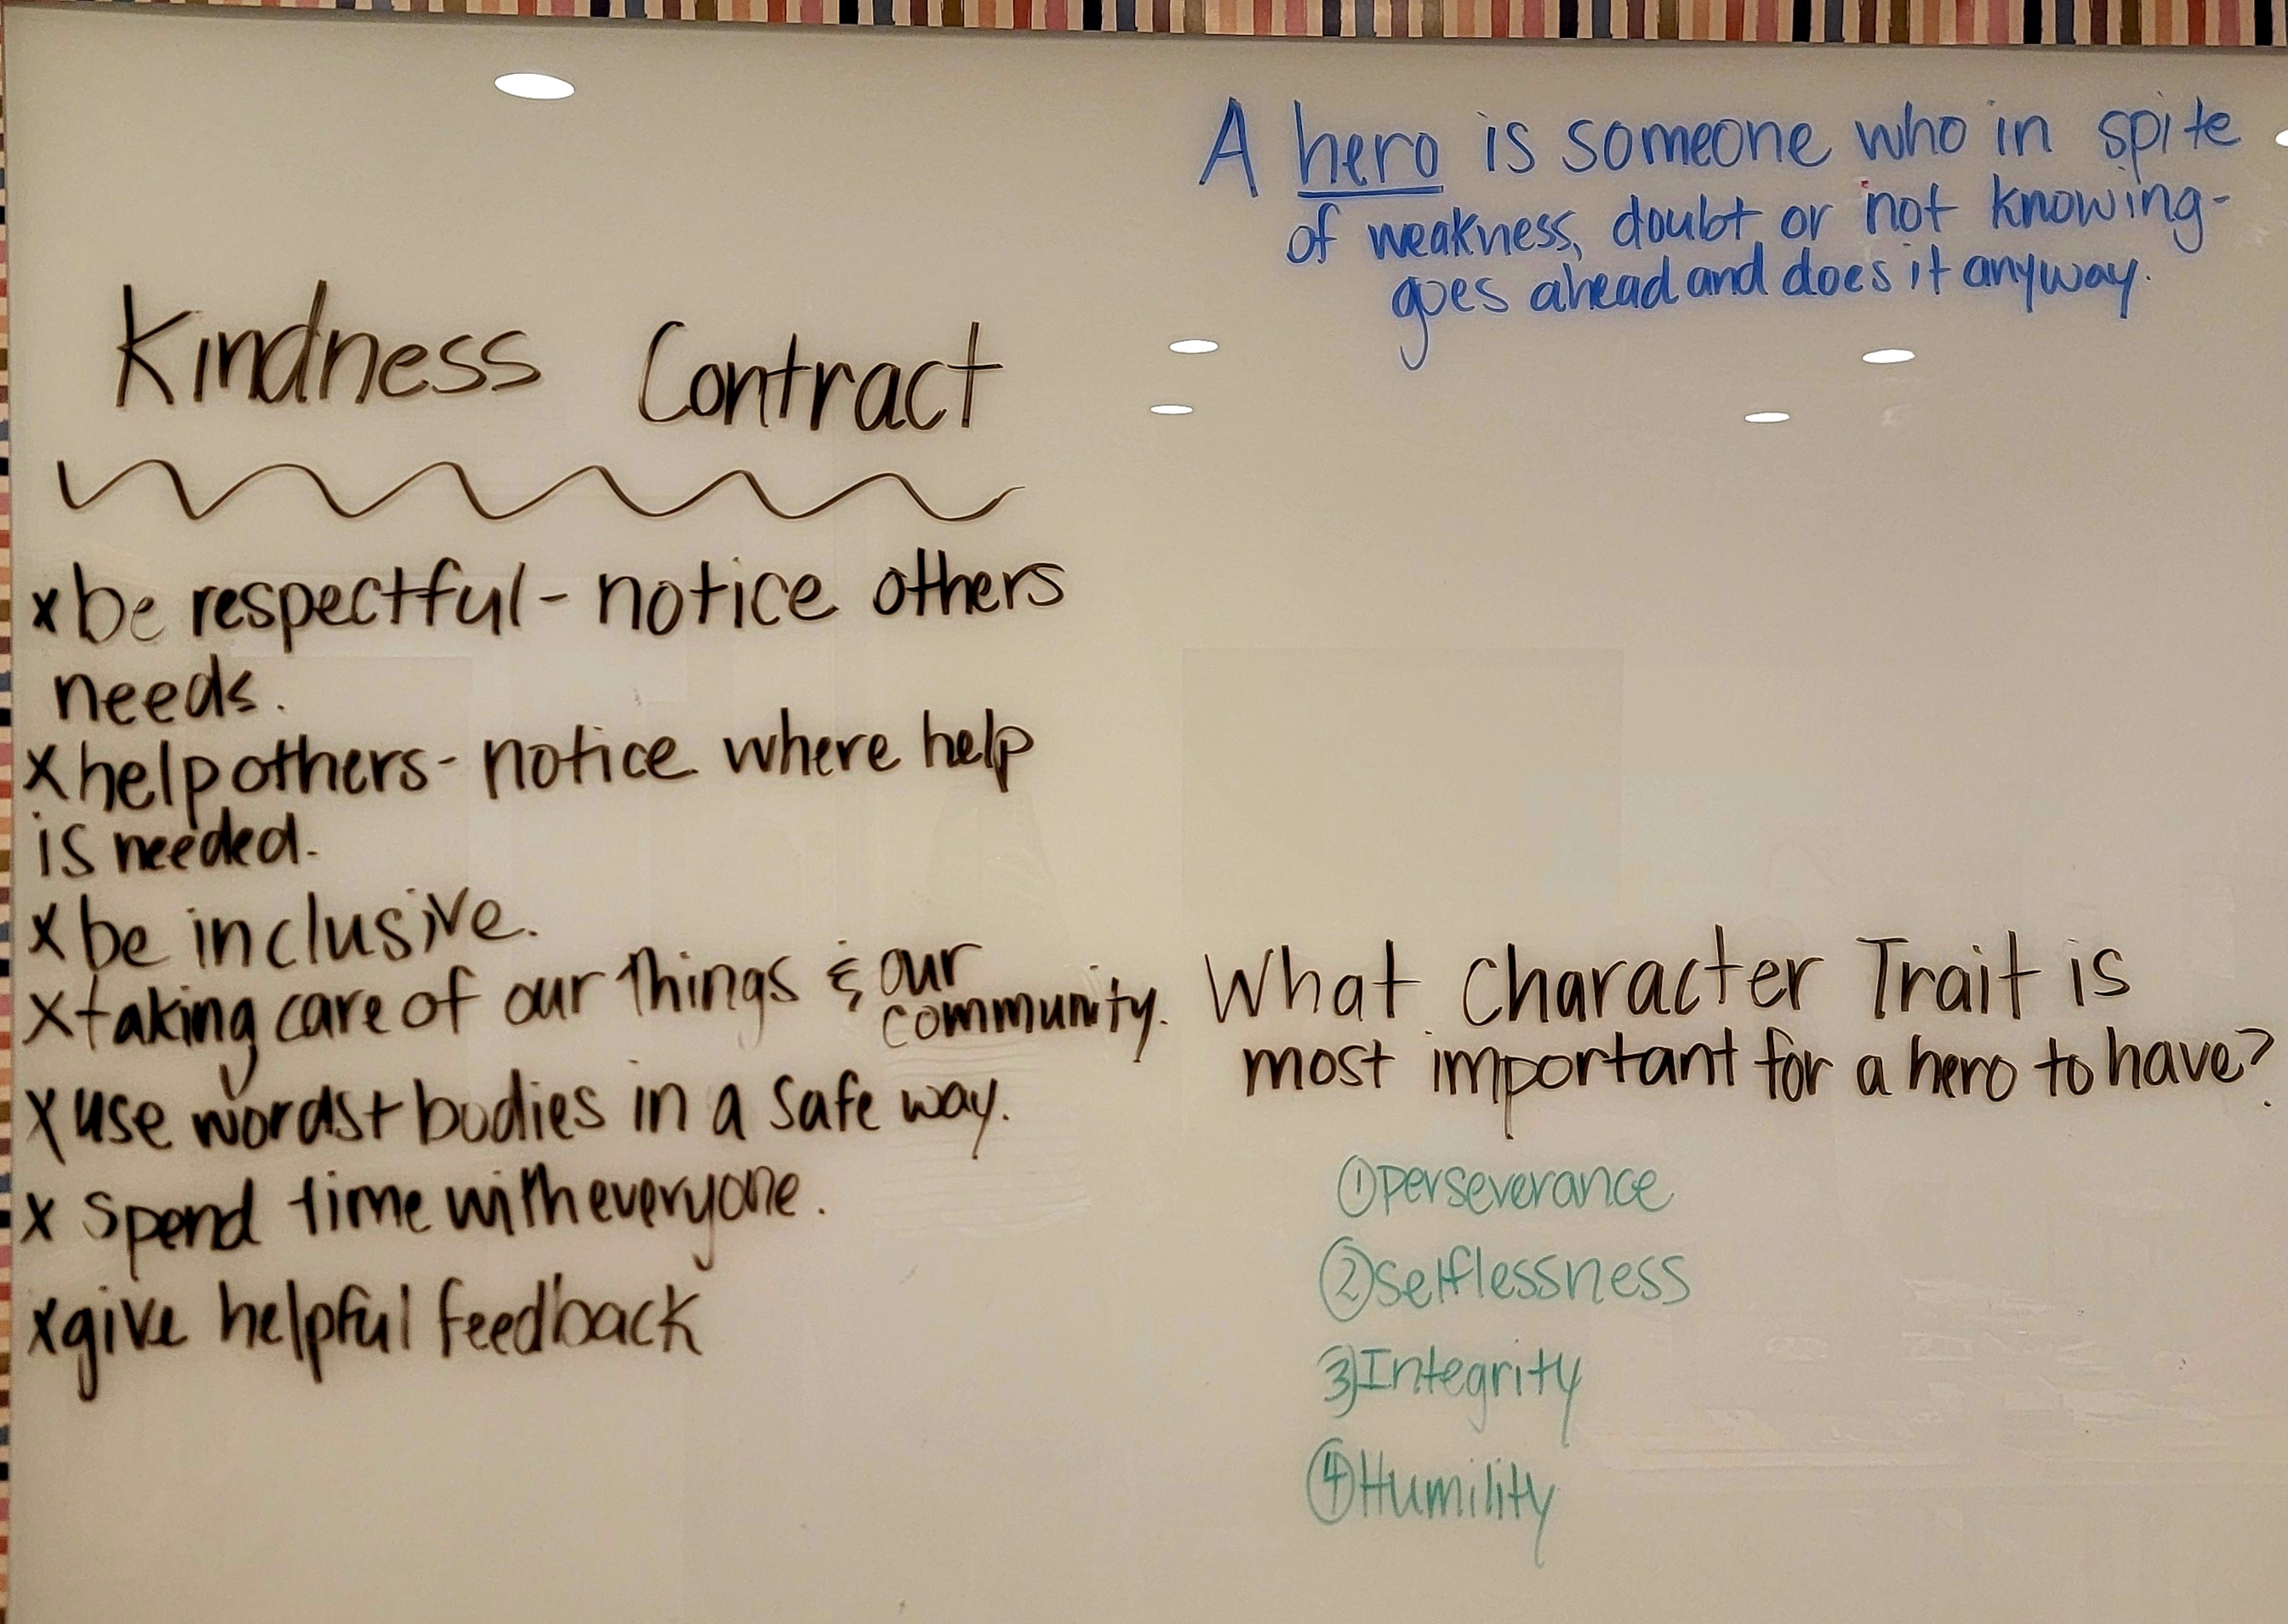 Kindness Contract
x be respectful - notice others
needs.
x help others - notice where help
is needed.
x be inclusive.
x taking care of our things & our
community.
x use words + bodies in a safe way.
x spend time with everyone.
x give helpful feedback
A hero is someone who in spite
of weakness, doubt or not knowing-
goes ahead and does it anyway.
What character Trait is
most important for a hero to have?
① perseverance
② selflessness
3) Integrity
④ Humility